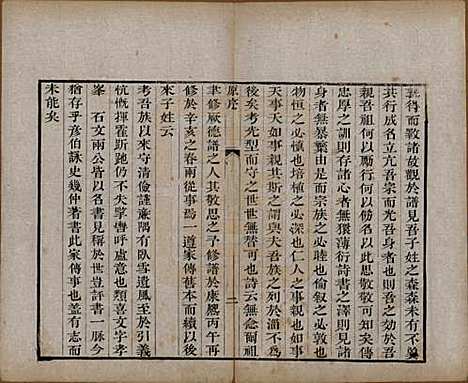 得而斁諸故觀於譜見吾子姓之森森未有不
其行成名立亢吾宗而光吾身者也則吾之効於吾
親吾祖何以勵行何以名以思敬敬可知也
忠厚之訓則存諸心者無薄衍詩書之澤則見諸
身者無暴棄由是而宗族之必睦也倫叙之必也
物恒之必慎也培植之必深也仁人之事親也如事
天事天如事親其斯之謂與夫吾族之列於淄不
後矣考先型而守之世世無替可也詩云無念爾祖
原序
二
聿修厥德譜之人其敬思之予修譜於康熙丙午再
修於辛亥之春兩從事焉一道家傳舊本續以後
來子姓云
考吾族以來守清儉謹廉隅有臥雪遺風至於引義
忼慨揮霍斯仍不失呼處意也類喜文字孝
峯 石文兩公皆以名書見稱於世豈評書一脉今
猶存乎彥伯詠史幾仲著書此家傳事也蓋有志而
未能矣